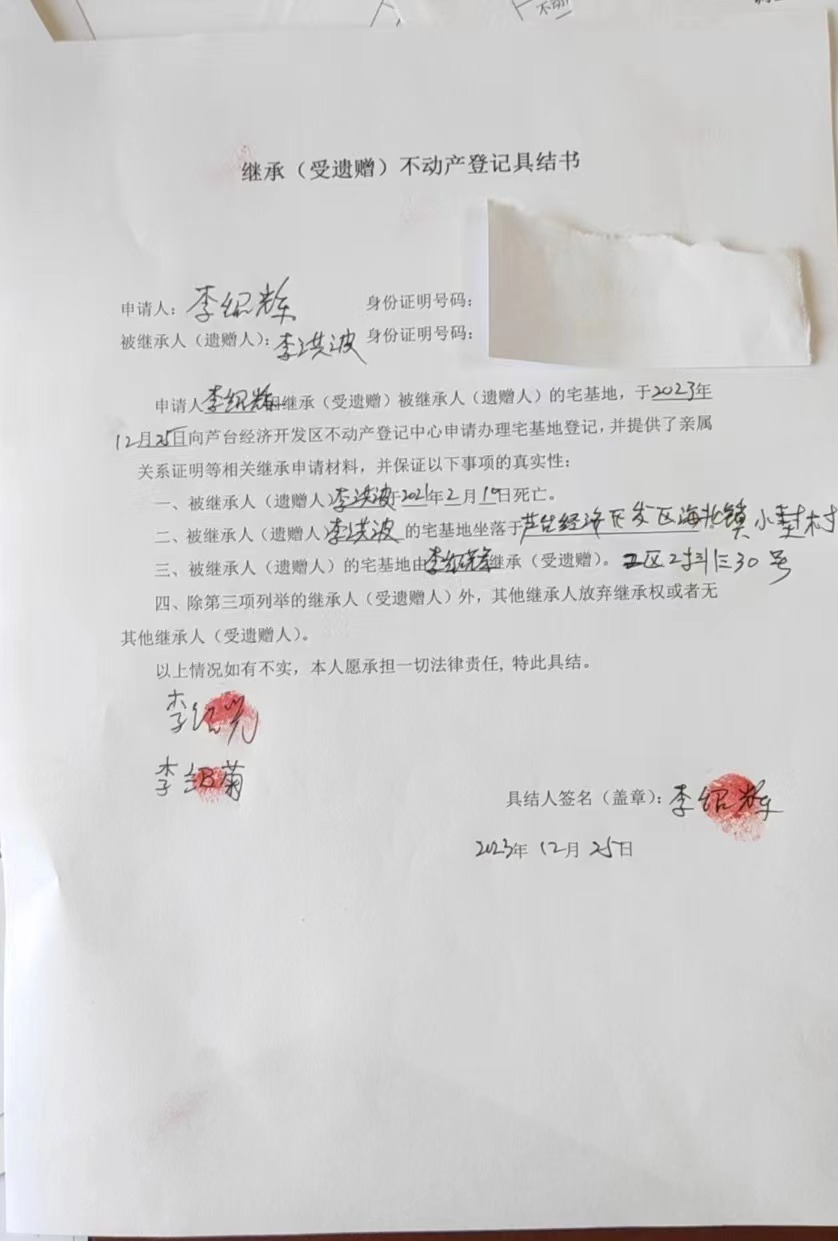 继承（受遗赠）不动产登记具结书
申请人：李绍辉 身份证明号码：
被继承人（遗赠人）：李洪波 身份证明号码：
申请人李绍辉因继承（受遗赠）被继承人（遗赠人）的宅基地，于2023年
12月25日向芦台经济开发区不动产登记中心申请办理宅基地登记，并提供了亲属
关系证明等相关继承申请材料，并保证以下事项的真实性：
一、被继承人（遗赠人）李洪波于2021年2月19日死亡。
二、被继承人（遗赠人）李洪波的宅基地坐落于芦台经济开发区海北镇小村
三、被继承人（遗赠人）的宅基地由李绍辉继承（受遗赠）。区2排30号
四、除第三项列举的继承人（受遗赠人）外，其他继承人放弃继承权或者无
其他继承人（受遗赠人）。
以上情况如有不实，本人愿承担一切法律责任，特此具结。
李绍光
李绍菊
具结人签名（盖章）：李绍辉
2023年12月25日